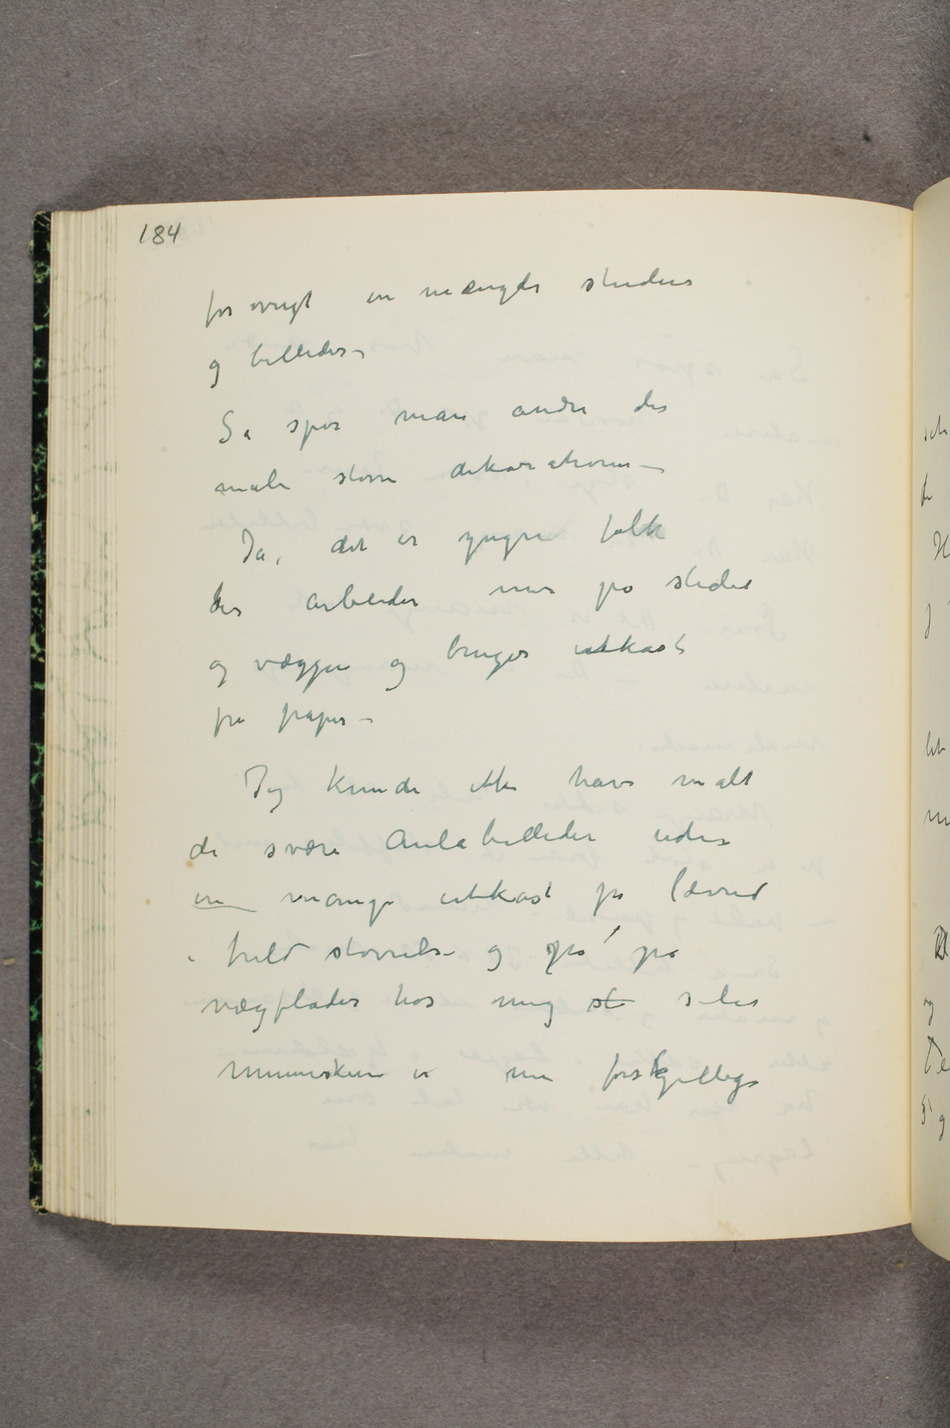 184
for øvrigt en mængde studier
og billeder –
Så spør man andre der
maler større dekorationer –
Ja, det er yngre folk
der arbeider mer på stedet
og væggen og bruger utkast
fra papir –
Jeg kunde ikke have malt
de svære Aulabilleder uden
en mange utkast på lærred
i held størrelse og på på
vægflader hos mig st selv
Menneskene er nu forskjellige